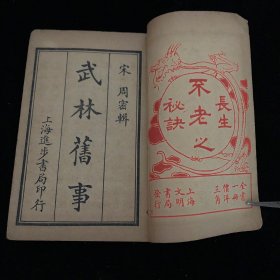 宋 周密輯
武林舊事
上海進步書局印行
長生
不老之
秘訣
全書一冊
價洋三角
上海
文明
書局
發行